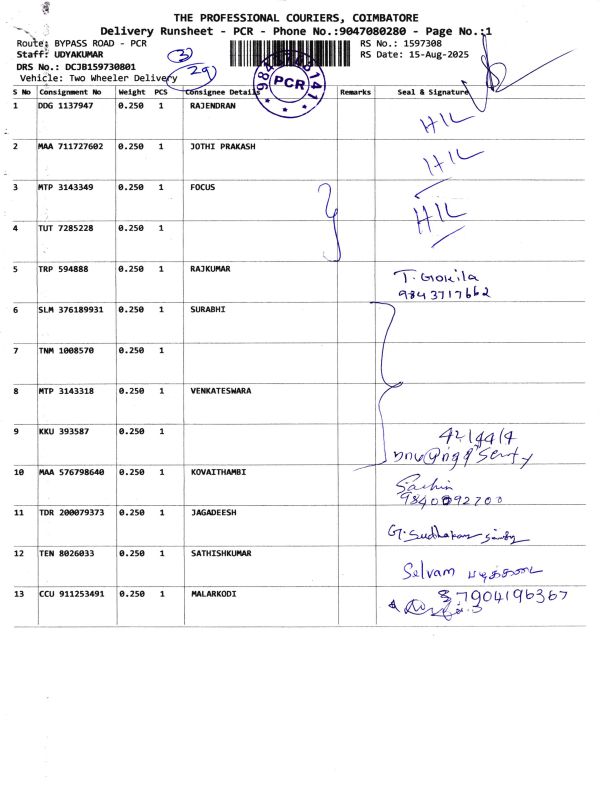 THE PROFESSIONAL COURIERS, COIMBATORE
Delivery Runsheet - PCR - Phone No.:9047080280 - Page No.:1
Route: BYPASS ROAD - PCR
RS No.: 1597308
Staff: UDYAKUMAR
RS Date: 15-Aug-2025
DRS No.: DCJB159730801
Vehicle: Two Wheeler Delivery
3
29
PCR
S No Consignment No Weight PCS Consignee Details Remarks Seal & Signature
1 DDG 1137947 0.250 1 RAJENDRAN HIL
2 MAA 711727602 0.250 1 JOTHI PRAKASH HIL
3 MTP 3143349 0.250 1 FOCUS HIL
4 TUT 7285228 0.250 1
5 TRP 594888 0.250 1 RAJKUMAR T. Gokila
9843717662
6 SLM 376189931 0.250 1 SURABHI
7 TNM 1008570 0.250 1
8 MTP 3143318 0.250 1 VENKATESWARA
9 KKU 393587 0.250 1
10 MAA 576798640 0.250 1 KOVAITHAMBI Sachin
9840092700
11 TDR 200079373 0.250 1 JAGADEESH G. Sudhakar
12 TEN 8026033 0.250 1 SATHISHKUMAR Selvam
13 CCU 911253491 0.250 1 MALARKODI 7904196367